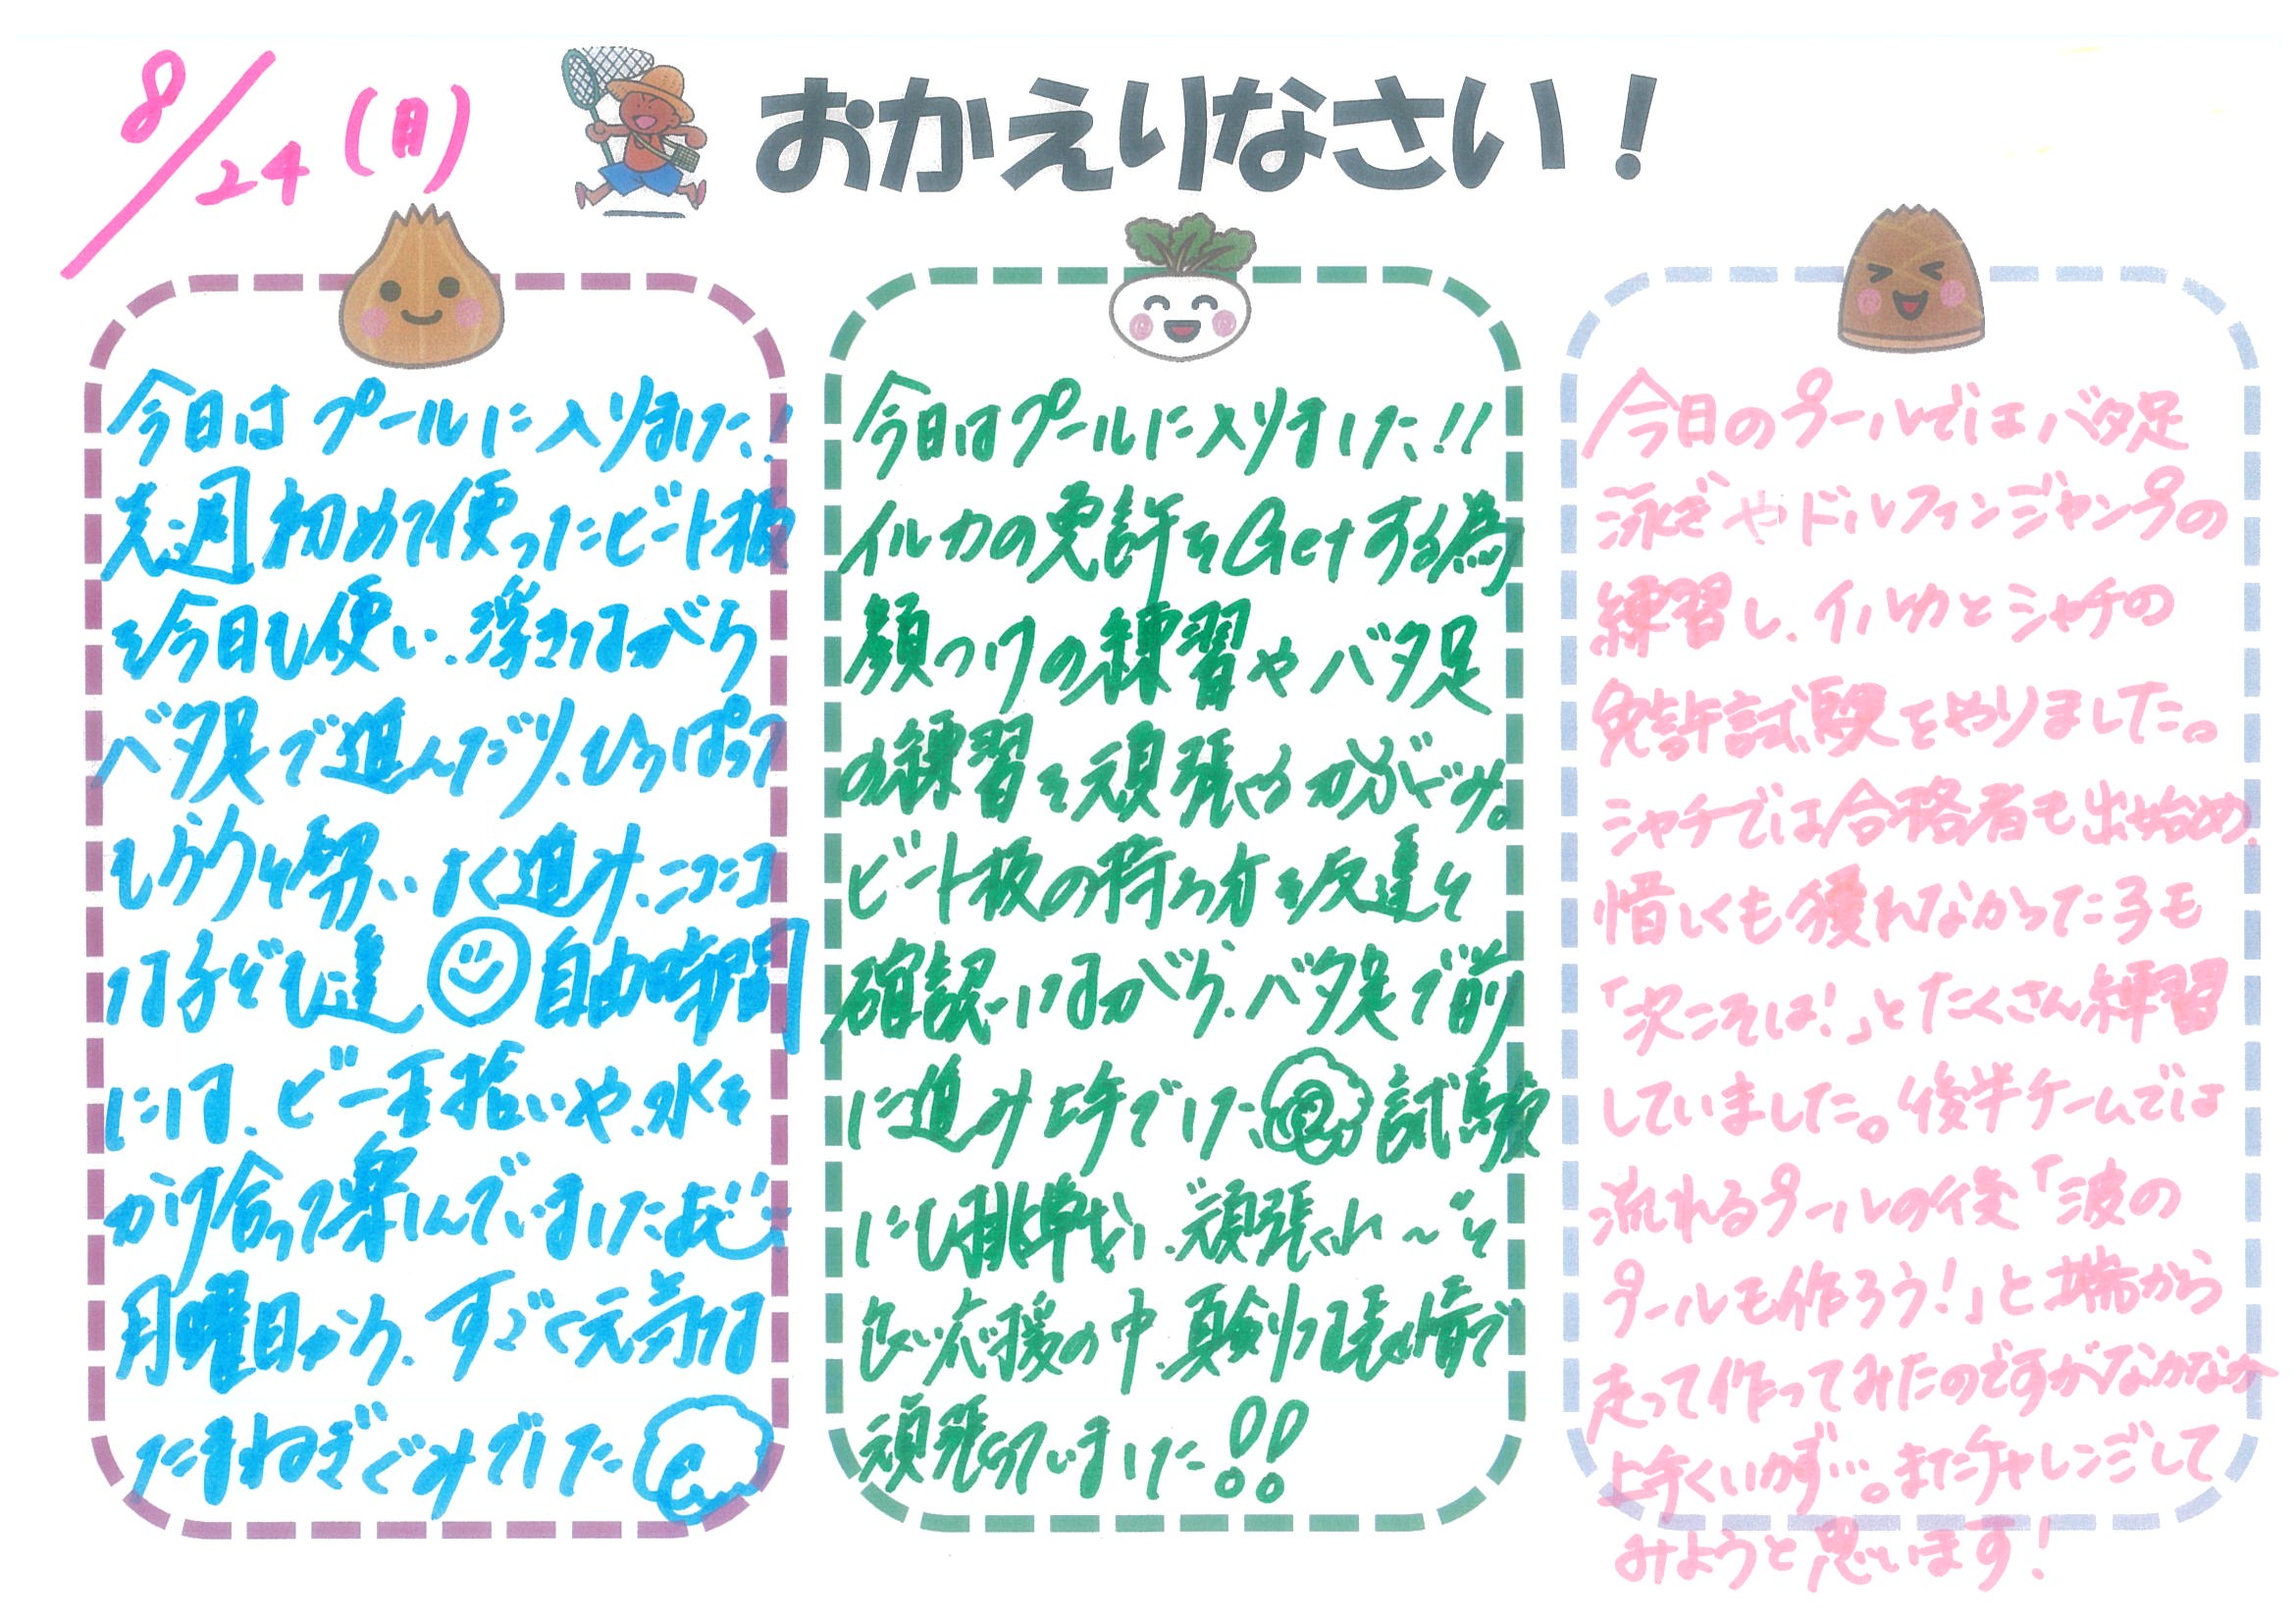 8/24(月)
おかえりなさい!
今日はプールに入りました!
先週初めて使ったビート板
を今日も使い、浮きながら
バタ足で進んだり、ひっぱって
もらうと勢いよく進み、ニコニコ
な子ども達 自由時間
には、ビー玉拾いや、水を
かけ合って楽しんでいましたよ
月曜日から、すごく元気な
たまねぎぐみでした
今日はプールに入りました!!
イルカの免許をGetする為
顔つけの練習やバタ足
の練習を頑張るかぶぐみ。
ビート板の持ち方を友達と
確認しながら、バタ足で前
に進み上手でした 試験
にも挑戦し、"頑張れ〜"と
良い応援の中、真剣な表情で
頑張っていました!!
今日のプールではバタ足
泳ぎやドルフィンジャンプの
練習し、イルカとシャチの
免許試験をやりました。
シャチでは合格者も出始め、
惜しくも獲れなかった子も
「次こそは!」とたくさん練習
していました。後半チームでは
流れるプールの後「波の
プールも作ろう!」と端から
走って作ってみたのですがなかなか
上手くいかず…。またチャレンジして
みようと思います!